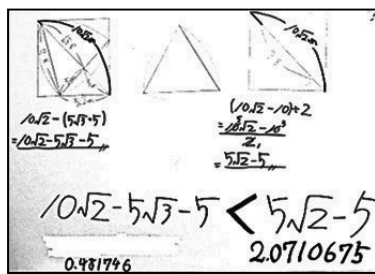 10√2m
10√2m
10√2-(5√3+5)
=10√2-5√3-5
(10√2-10)÷2
=10√2-10
2
=5√2-5
10√2-5√3-5 < 5√2-5
0.481746
2.0710675